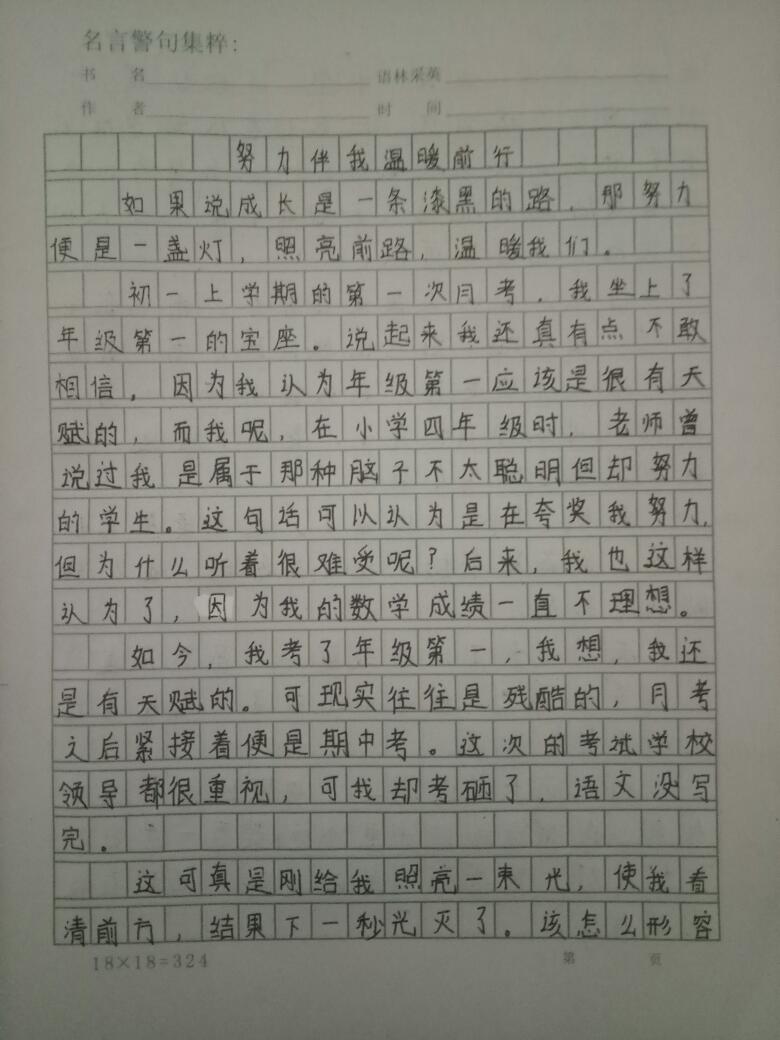 名言警句集粹:
书 名 语林采英
作 者 时 间
努力伴我温暖前行
如果说成长是一条漆黑的路，那努力
便是一盏灯，照亮前路，温暖我们。
初一上学期的第一次月考，我坐上了
年级第一的宝座。说起来我还真有点不敢
相信，因为我认为年级第一应该是很有天
赋的，而我呢，在小学四年级时，老师曾
说过我是属于那种脑子不太聪明但却努力
的学生。这句话可以认为是在夸奖我努力，
但为什么听着很难受呢？后来，我也这样
认为了，因为我的数学成绩一直不理想。
如今，我考了年级第一，我想，我还
是有天赋的。可现实往往是残酷的，月考
之后紧接着便是期中考。这次的考试学校
领导都很重视，可我却考砸了，语文没写
完。
这可真是刚给我照亮一束光，使我看
清前方，结果下一秒光灭了。该怎么形容
18×18=324 第 页